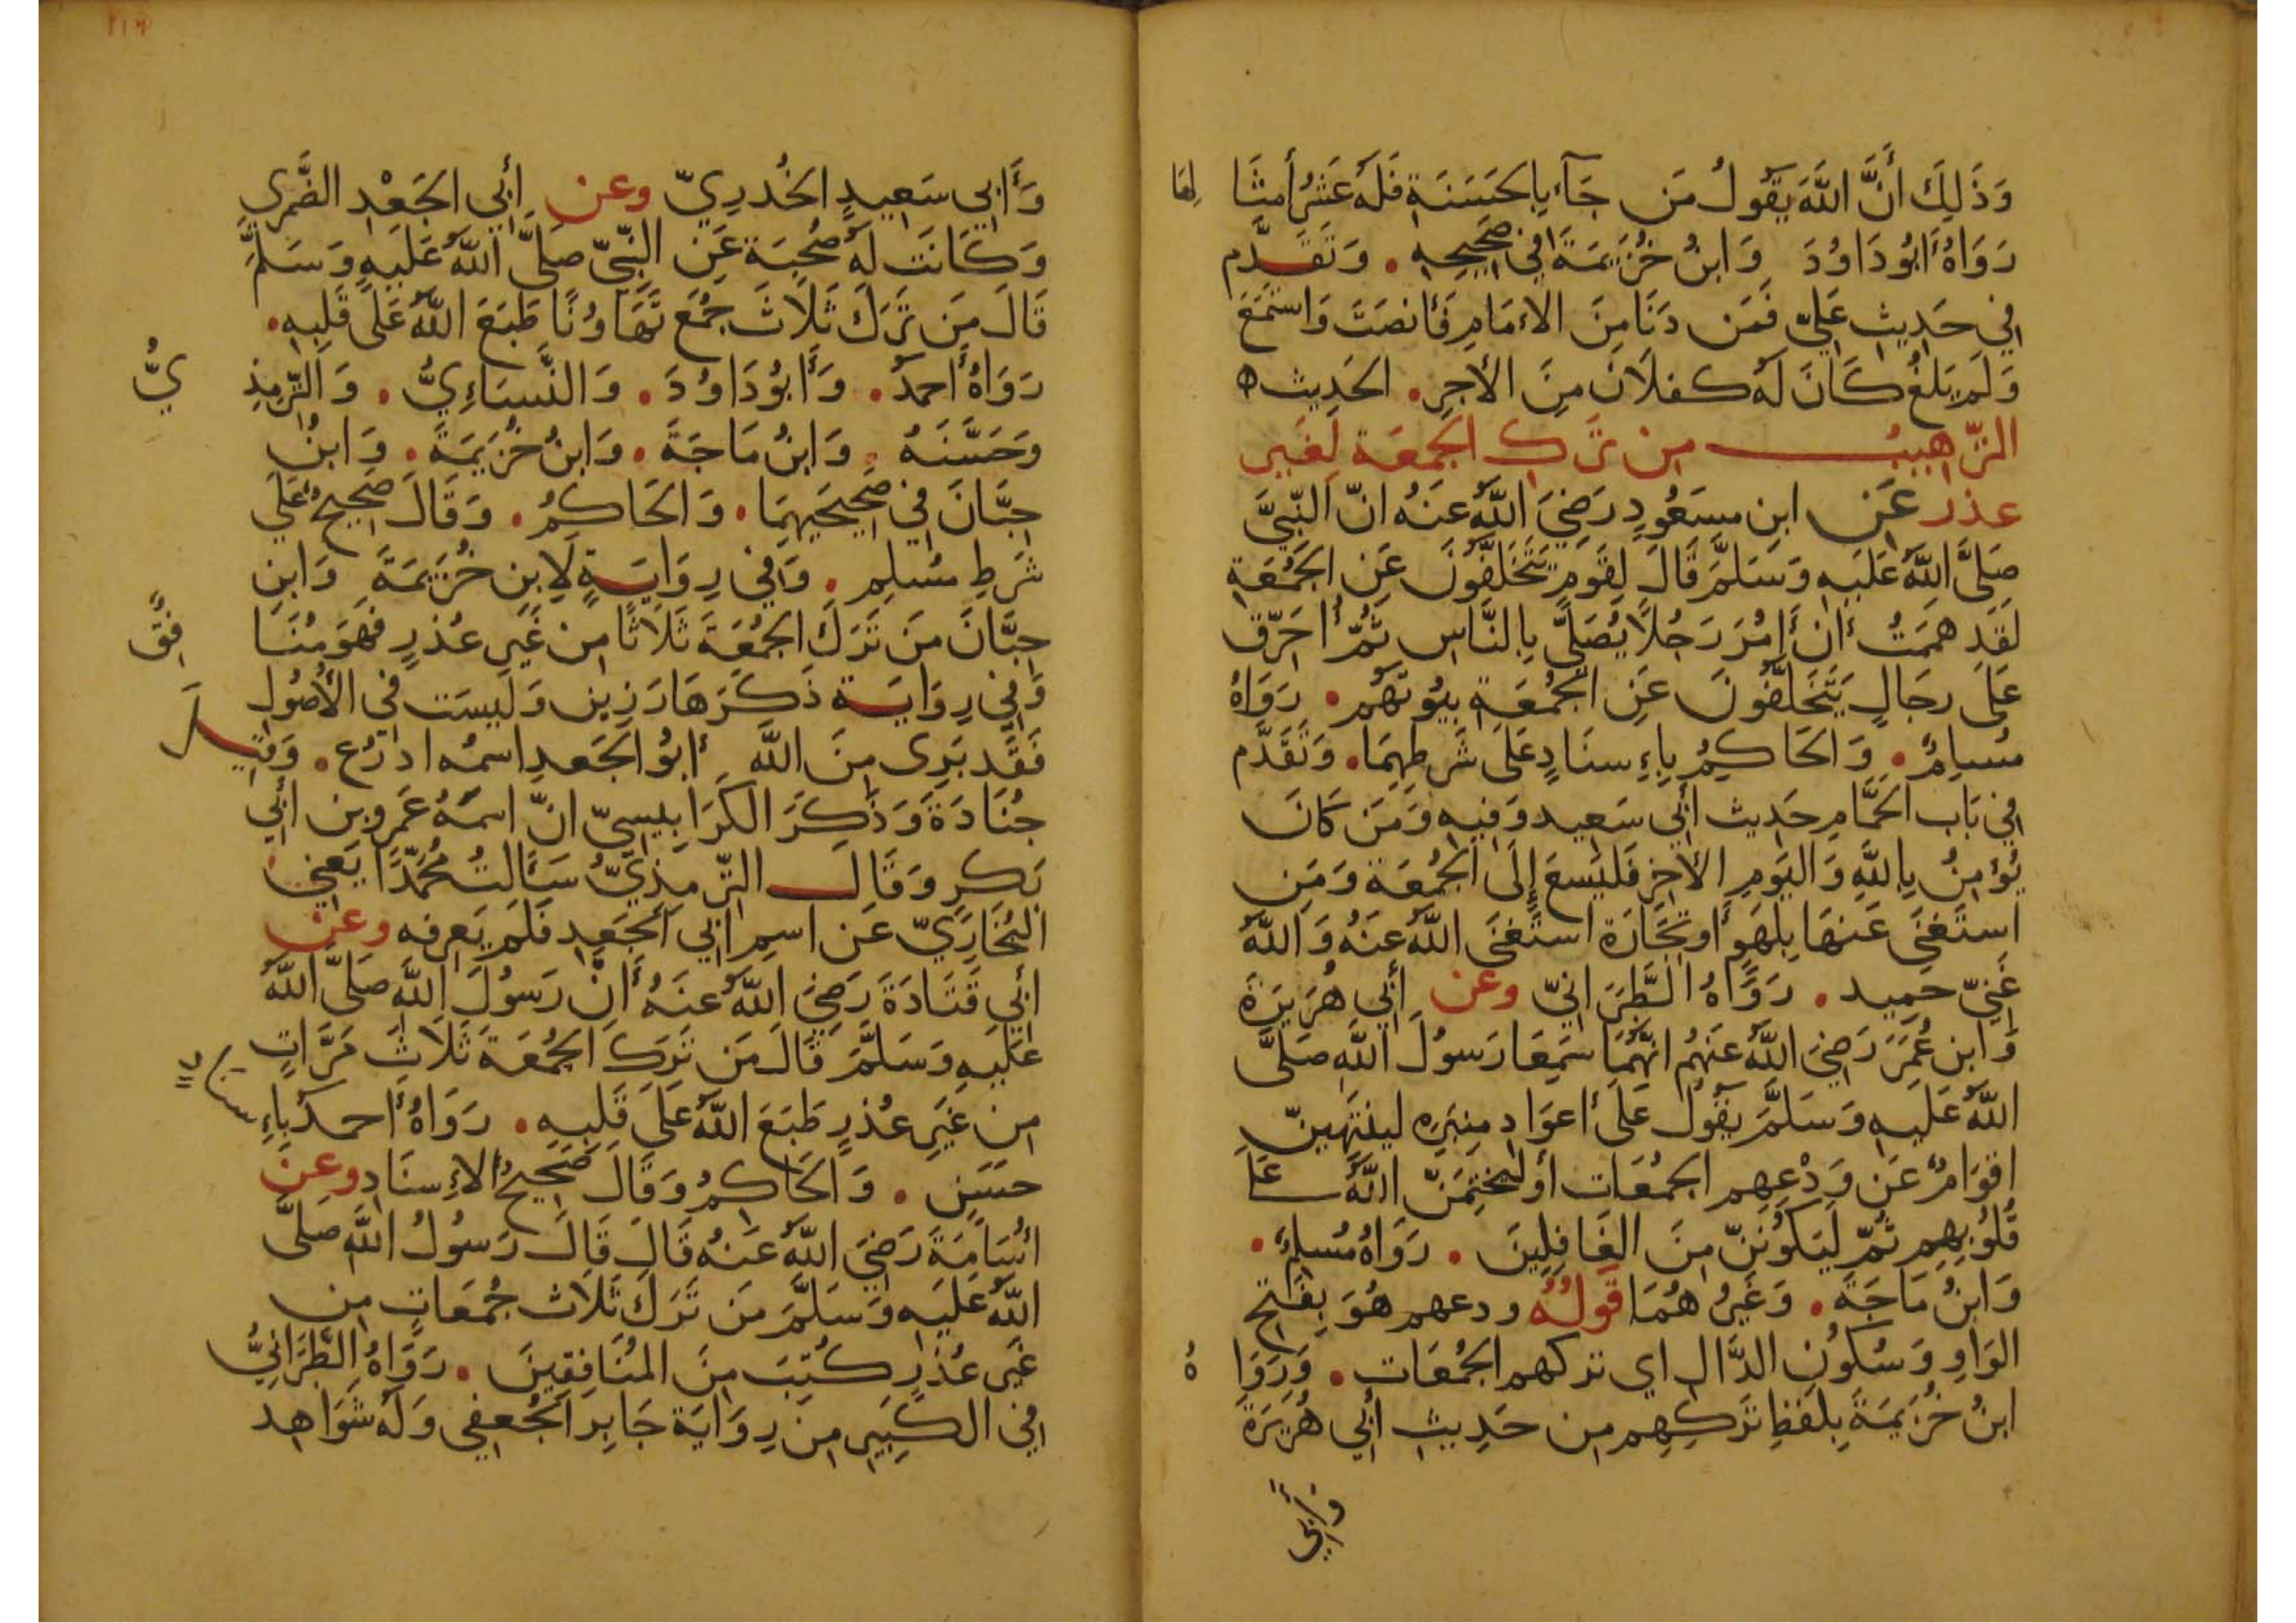 وَذَلِكَ أَنَّ اللَّهَ يَقُولُ مَن جَآءَ بِالحَسَنَةِ فَلَهُ عَشَرُ أَمثَا لِهَا
رَوَاهُ أَبُو دَاوُدَ وَابنُ خُزَيمَةَ فِي صَحِيحِهِ . وَتَقَدَّم
فِي حَدِيثِ عَلِيّ فَمَن دَنَا مِنَ الإِمَامِ فَأَنصَتَ وَاستَمَعَ
وَلَم يَلغُ كَانَ لَهُ كفلَانِ مِنَ الأَجرِ . الحَدِيث ه
التَّرهِيبُ مِن تَركِ الجُمعَة لِغَيرِ
عذر عَن ابنِ مسعُودٍ رَضِيَ اللَّهُ عَنهُ انّ النَّبِيَّ
صَلَّى اللَّهُ عَلَيهِ وَسَلَّمَ قَالَ لِقَومٍ يَتَخَلَّفُونَ عَنِ الجُمُعَةِ
لَقَد هَمَمتُ أَن أمُرَ رَجُلًا يُصَلِّي بِالنَّاسِ ثُمّ أُحَرِّق
عَلَى رِجَالٍ يَتَخَلَّفُونَ عَنِ الجُمُعَةِ بيُوتَهُم . رَوَاهُ
مُسلِمٌ . وَالحَاكِمُ بِإِسنَادٍ عَلَى شَرطِهِمَا . وَتَقَدَّم
فِي بَاب الحَمَّامِ حَدِيث أَبِي سَعِيد وَفِيهِ وَمَن كَانَ
يُؤمِنُ بِاللَّهِ وَاليَومِ الأَخِرِ فَليَسعَ إِلَى الجُمُعَة وَمَنِ
استَغنَى عَنهَا بِلَهوٍ أَو تِجَارَة استَغنَى اللَّهُ عَنهُ وَاللَّهُ
غَنِيّ حَمِيد . رَوَاهُ الطَّبَرَانِيّ وعن أَبِي هُرَيرَةَ
وَابن عُمَرَ رَضِيَ اللَّهُ عَنهُم انَّهُمَا سَمِعَا رَسُولَ اللَّهِ صَلَّى
اللَّهُ عَلَيهِ وَسَلَّمَ يَقُولُ عَلَى أَعوَادِ مِنبَرِهِ لينتَهِينّ
اقوَامٌ عَن وَدْعِهِم الجُمُعَات أَو لَيَختِمَنّ اللَّهُ عَلَى
قُلُوبِهِم ثُمّ لَيَكُونُنّ مِنَ الغَافِلِينَ . رَوَاهُ مُسلِمٌ .
وَابنُ مَاجَةَ . وَغَيرُ هُمَا قَولُهُ ودعهم هُوَ بِفَتحِ
الوَاوِ وَسُكُونِ الدَّال اي تركهم الجُمُعَات . وَرَوَا هُ
ابنُ خُزَيمَةَ بِلَفظِ تَركِهِم مِن حَدِيثِ أَبِي هُرَيرَةَ
وَأَبِي
وَأَبِي سَعِيدٍ الخُدرِيّ وعن أَبِي الجَعْدِ الضَّمرِيِ
وَكَانَت لَهُ صُحبَة عَنِ النَّبِيّ صَلَّى اللَّهُ عَلَيهِ وَسَلَّمَ
قَالَ مَن تَرَكَ ثَلَاثَ جُمَع تَهَاوُنًا طَبَعَ اللَّهُ عَلَى قَلبِهِ .
رَوَاهُ أَحمَدُ . وَأَبُو دَاوُدَ . وَالنَّسَاءِيُّ . وَالتِّرمِذِ يُّ
وَحَسَّنَهُ . وَابنُ مَاجَةَ . وَابنُ خُزَيمَةَ . وَابنُ
حِبَّانَ فِي صَحِيحَيهِمَا . وَالحَاكِمُ . وَقَالَ صَحِيحٌ عَلَى
شَرطِ مُسلِمٍ . وَفِي رِوَايَةٍ لِابنِ خُزَيمَةَ وَابنِ
حِبَّانَ مَن تَرَكَ الجُمُعَةَ ثَلَاثًا مِن غَيرِ عُذرٍ فَهُوَ مُنَا فِقٌ
وَفِي رِوَايَة ذَكَرَهَا رَزِين وَلَيسَت فِي الأُصُولِ
فَقَد بَرِى مِنَ اللَّهِ أَبُو الجَعدِ اسمُه ادرُع . وَقِيلَ
جُنَادَة وَذَكَرَ الكَرَابِيسِيّ انّ اسمَهُ عَمرو بن أَبِي
بَكرٍ وَقَالَ التِّرمِذِيُّ سَأَلتُ مُحَمَّدًا يَعنِي
البُخَارِيّ عَن اسمِ أَبِي الجَعدِ فَلَم يَعرِفه وعن
أَبِي قَتَادَةَ رَضِيَ اللَّهُ عَنهُ أَنّ رَسُولَ اللَّهِ صَلَّى اللَّهُ
عَلَيهِ وَسَلَّمَ قَالَ مَن تَرَكَ الجُمُعَةَ ثَلَاثَ مَرَّاتٍ
مِن غَيرِ عُذرٍ طَبَعَ اللَّهُ عَلَى قَلبِهِ . رَوَاهُ أَحمَدُ بِإِسنَادٍ
حَسَنٍ . وَالحَاكِمُ وَقَالَ صَحِيحُ الإِسنَادِ وعن
أُسَامَةَ رَضِيَ اللَّهُ عَنهُ قَالَ قَالَ رَسُولُ اللَّهِ صَلَّى
اللَّهُ عَلَيهِ وَسَلَّمَ مَن تَرَكَ ثَلَاث جُمُعَاتٍ مِن
غَيرِ عُذرٍ كُتِبَ مِنَ المُنَافِقِينَ . رَوَاهُ الطَّبَرَانِيُّ
فِي الكَبِيرِ مِن رِوَايَة جَابِرِ الجُعفِي وَلَهُ شَوَاهِد